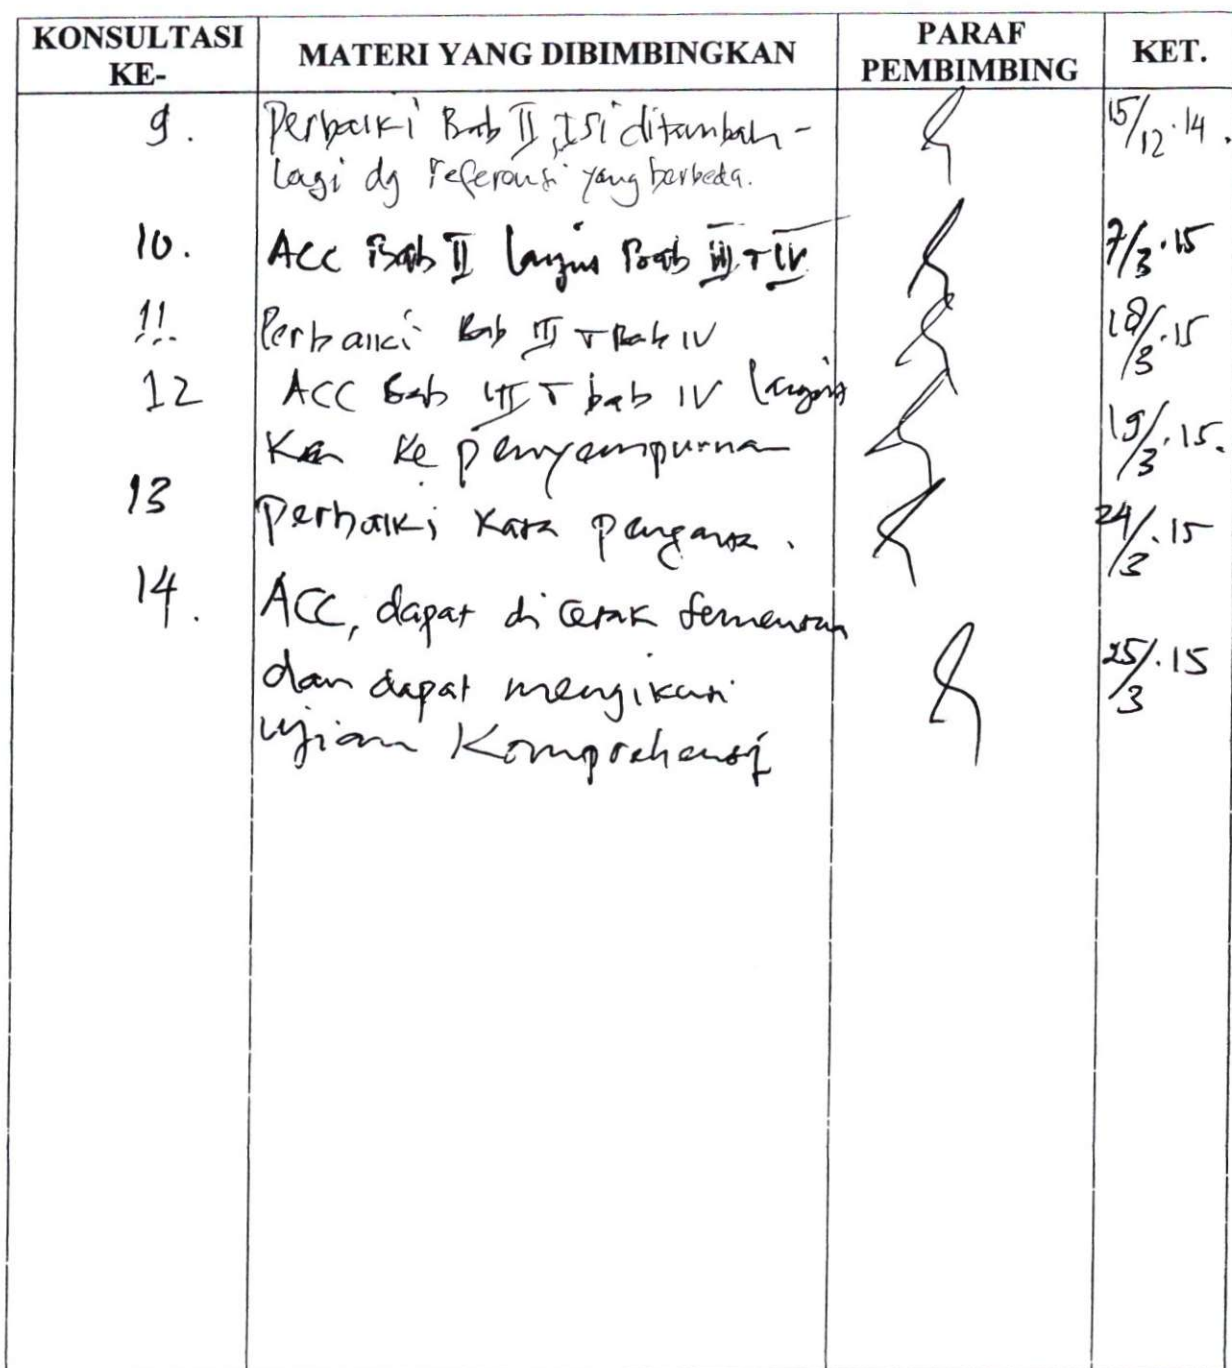 KONSULTASI KE-
MATERI YANG DIBIMBINGKAN
PARAF PEMBIMBING
KET.
9. Perbaiki Bab II, Isi ditambah- 15/12.14.
lagi dg referensi yang berbeda.
10. ACC Bab II Bab III + IV 7/3.15
11. Perbaiki Bab III + Bab IV 18/3.15
12 ACC Bab III + bab IV
kan ke penyempurnaan 19/3.15.
13 perbaiki Kata pengantar. 24/3.15
14. ACC, dapat di cetak sementara
dan dapat mengikuti 25/3.15
ujian Komprehensif